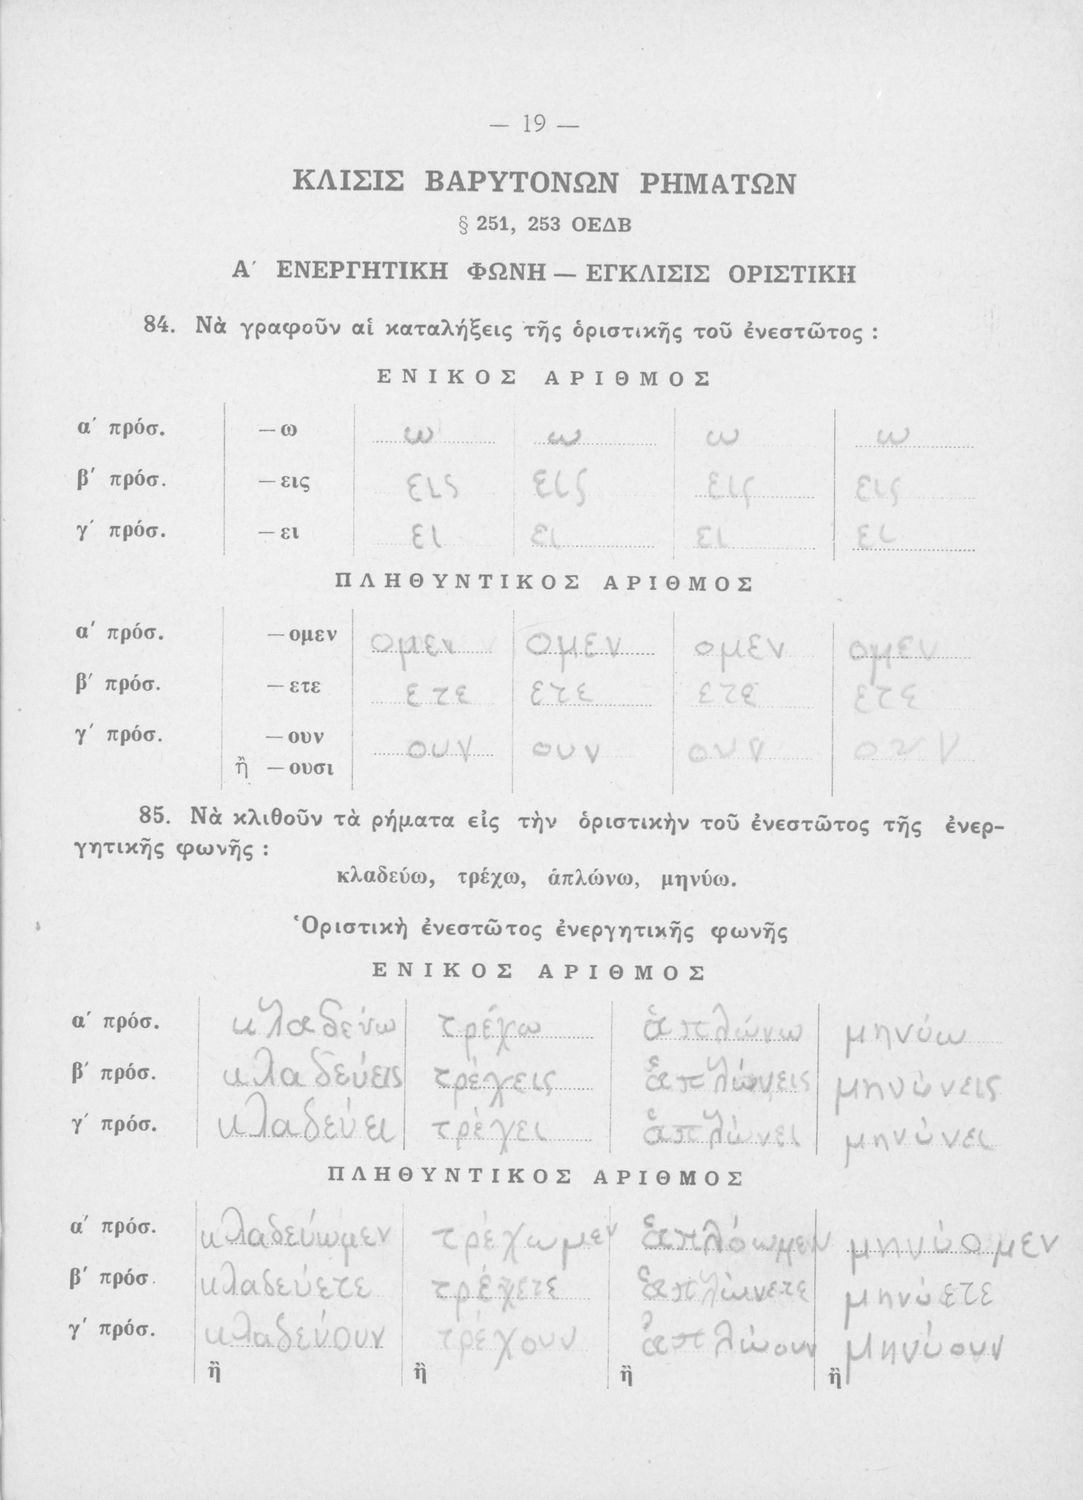 — 19 —
ΚΛΙΣΙΣ ΒΑΡΥΤΟΝΩΝ ΡΗΜΑΤΩΝ
§ 251, 253 ΟΕΔΒ
Α΄ ΕΝΕΡΓΗΤΙΚΗ ΦΩΝΗ — ΕΓΚΛΙΣΙΣ ΟΡΙΣΤΙΚΗ
84. Νὰ γραφοῦν αἱ καταλήξεις τῆς ὁριστικῆς τοῦ ἐνεστῶτος :
ΕΝΙΚΟΣ ΑΡΙΘΜΟΣ
α΄ πρόσ. —ω ω ω ω ω
β΄ πρόσ. —εις εις εις εις εις
γ΄ πρόσ. —ει ει ει ει ει
ΠΛΗΘΥΝΤΙΚΟΣ ΑΡΙΘΜΟΣ
α΄ πρόσ. —ομεν ομεν ομεν ομεν ομεν
β΄ πρόσ. —ετε ετε ετε ετε ετε
γ΄ πρόσ. —ουν ουν ουν ουν ουν
ἢ —ουσι
85. Νὰ κλιθοῦν τὰ ρήματα εἰς τὴν ὁριστικὴν τοῦ ἐνεστῶτος τῆς ἐνερ-
γητικῆς φωνῆς :
κλαδεύω, τρέχω, ἁπλώνω, μηνύω.
Ὁριστικὴ ἐνεστῶτος ἐνεργητικῆς φωνῆς
ΕΝΙΚΟΣ ΑΡΙΘΜΟΣ
α΄ πρόσ. κλαδεύω τρέχω ἁπλώνω μηνύω
β΄ πρόσ. κλαδεύεις τρέχεις ἁπλώνεις μηνύνεις
γ΄ πρόσ. κλαδεύει τρέχει ἁπλώνει μηνύνει
ΠΛΗΘΥΝΤΙΚΟΣ ΑΡΙΘΜΟΣ
α΄ πρόσ. κλαδεύωμεν τρέχωμεν ἁπλόωμεν μηνύομεν
β΄ πρόσ. κλαδεύετε τρέχετε ἁπλώνετε μηνύετε
γ΄ πρόσ. κλαδεύουν τρέχουν ἁπλώουν μηνύουν
ἢ ἢ ἢ ἢ